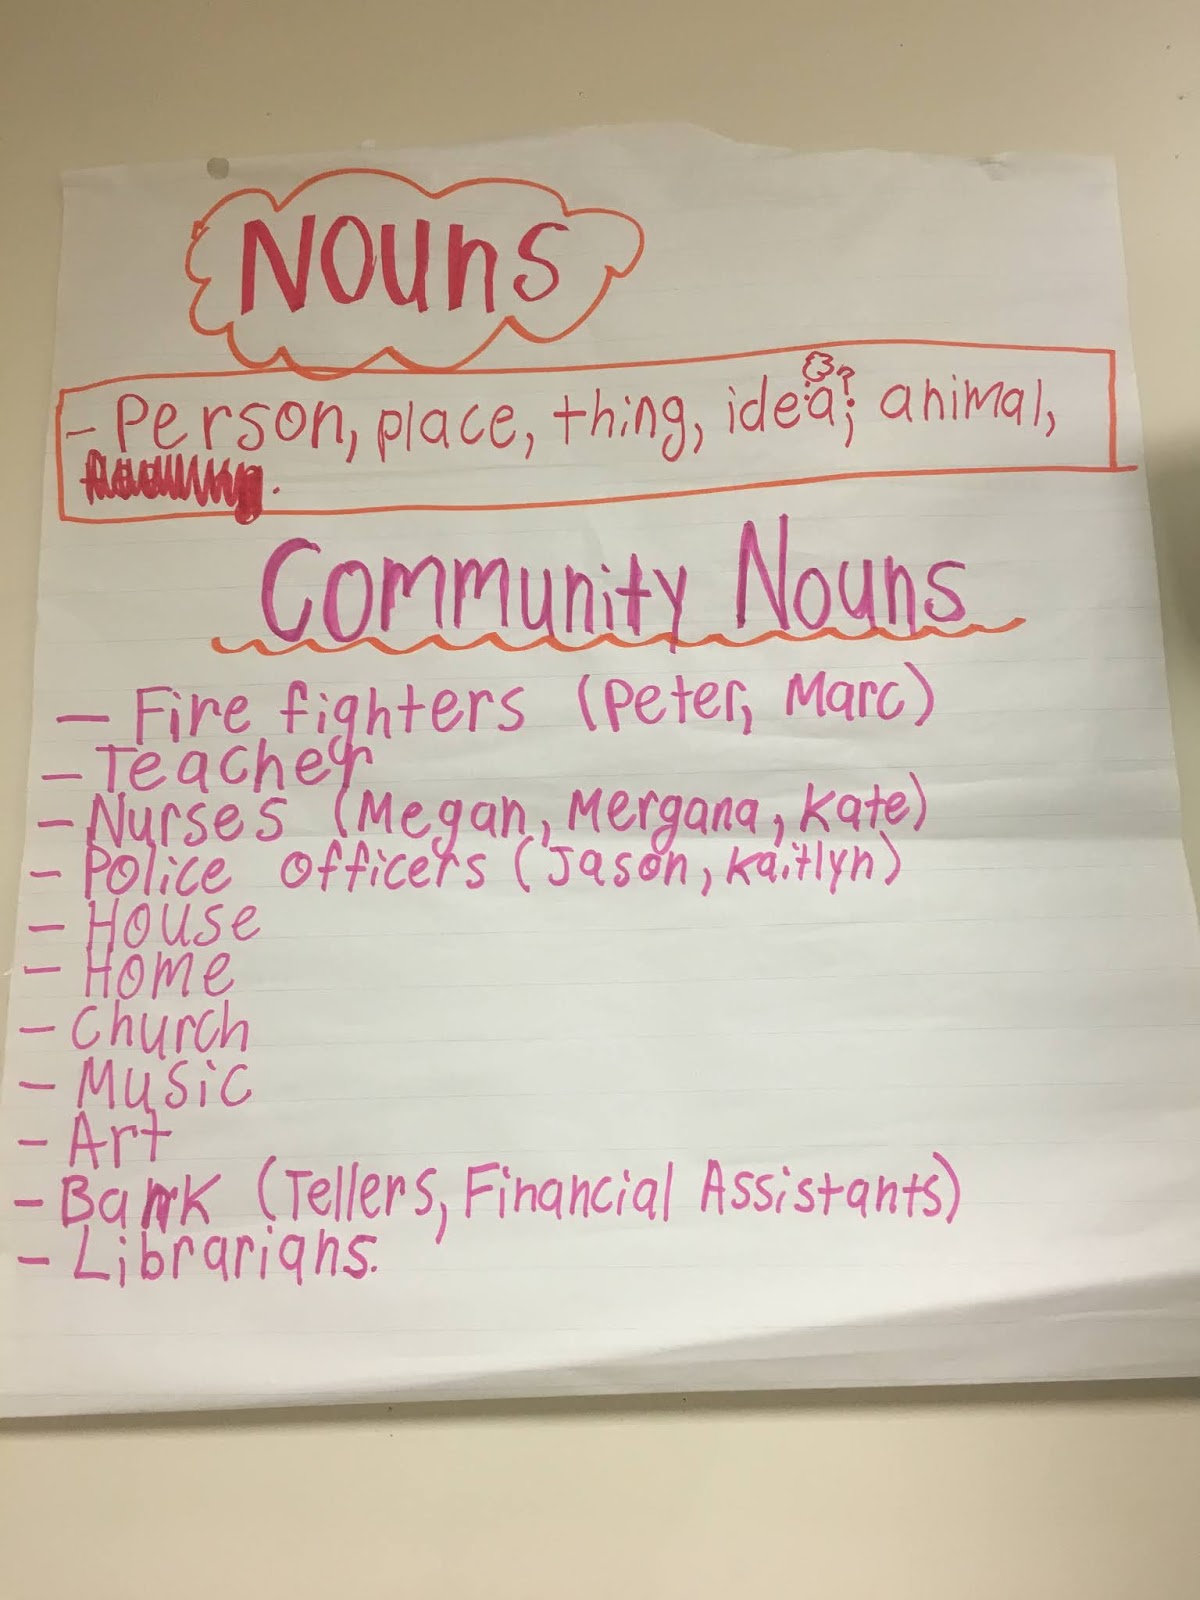 Nouns
- Person, place, thing, idea, ? animal,
Community Nouns
- Fire fighters (Peter, Marc)
- Teacher
- Nurses (Megan, Mergana, Kate)
- Police Officers (Jason, Kaitlyn)
- House
- Home
- Church
- Music
- Art
- Bank (Tellers, Financial Assistants)
- Librarians.